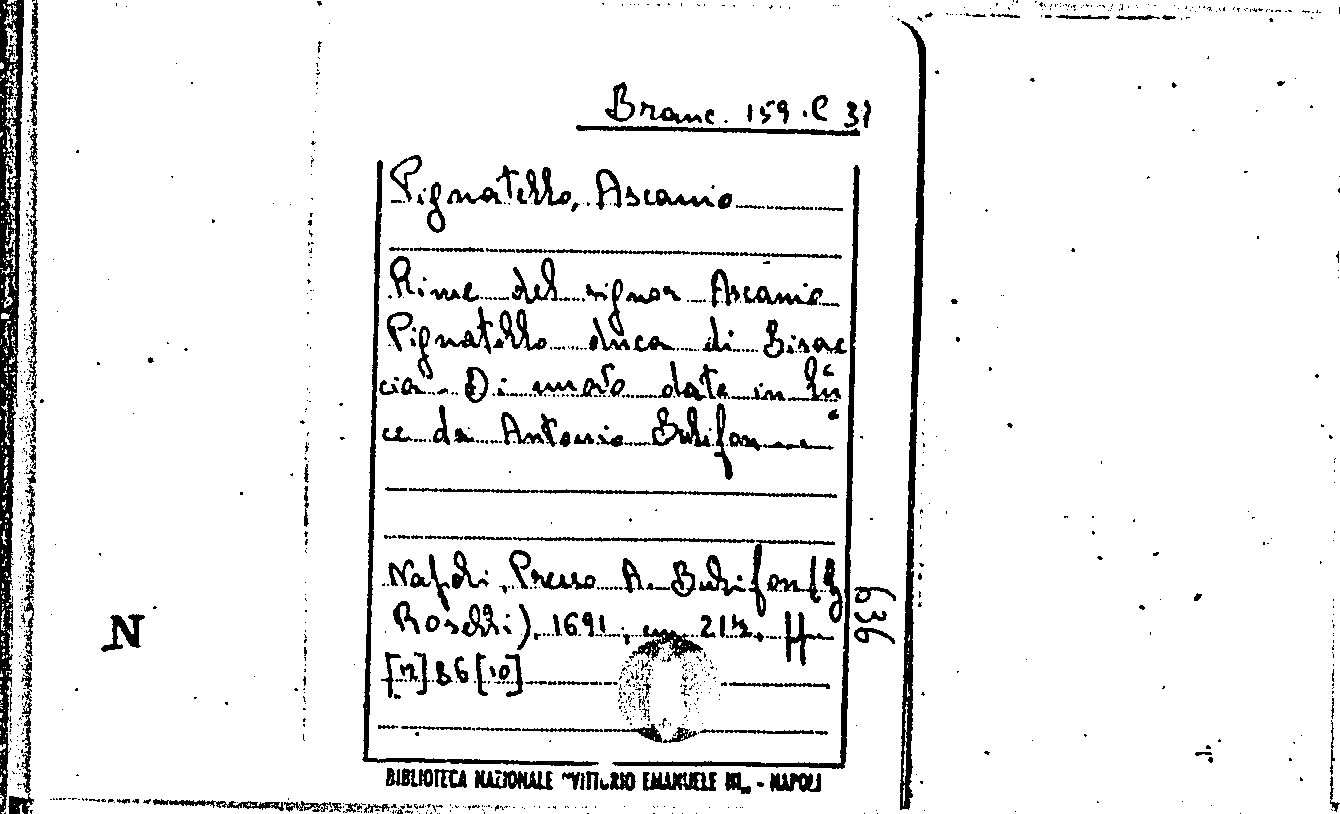 Branc. 159.C 37
Pignatello, Ascanio
Rime del signor Ascanio
Pignatello duca di Bisac
cia. Di nuovo date in lu
ce da Antonio Bulifon
Napoli, Presso A. Bulifon (G
Roselli), 1691, cm 21½. pp
[12] 86 [10]
636
N
BIBLIOTECA NAZIONALE "VITTORIO EMANUELE III„ - NAPOLI